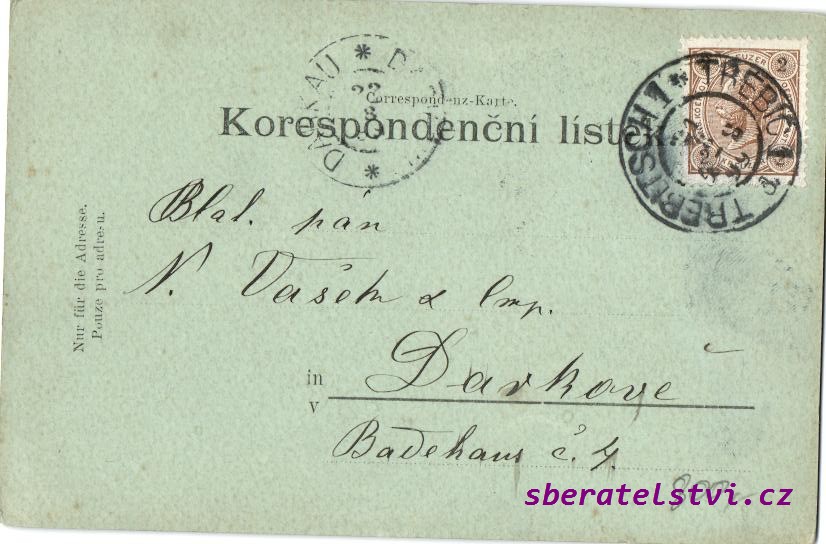 Correspondenz-Karte.
Korespondenční lístek.
DARKAU
TREBITSCH 1 * TŘEBIČ 1
2
Nur für die Adresse.
Pouze pro adresu.
Blal. pán
V. Vašek & Cmp.
in
v
Darkově
Badehaus č. 4.
800,-
sberatelstvi.cz